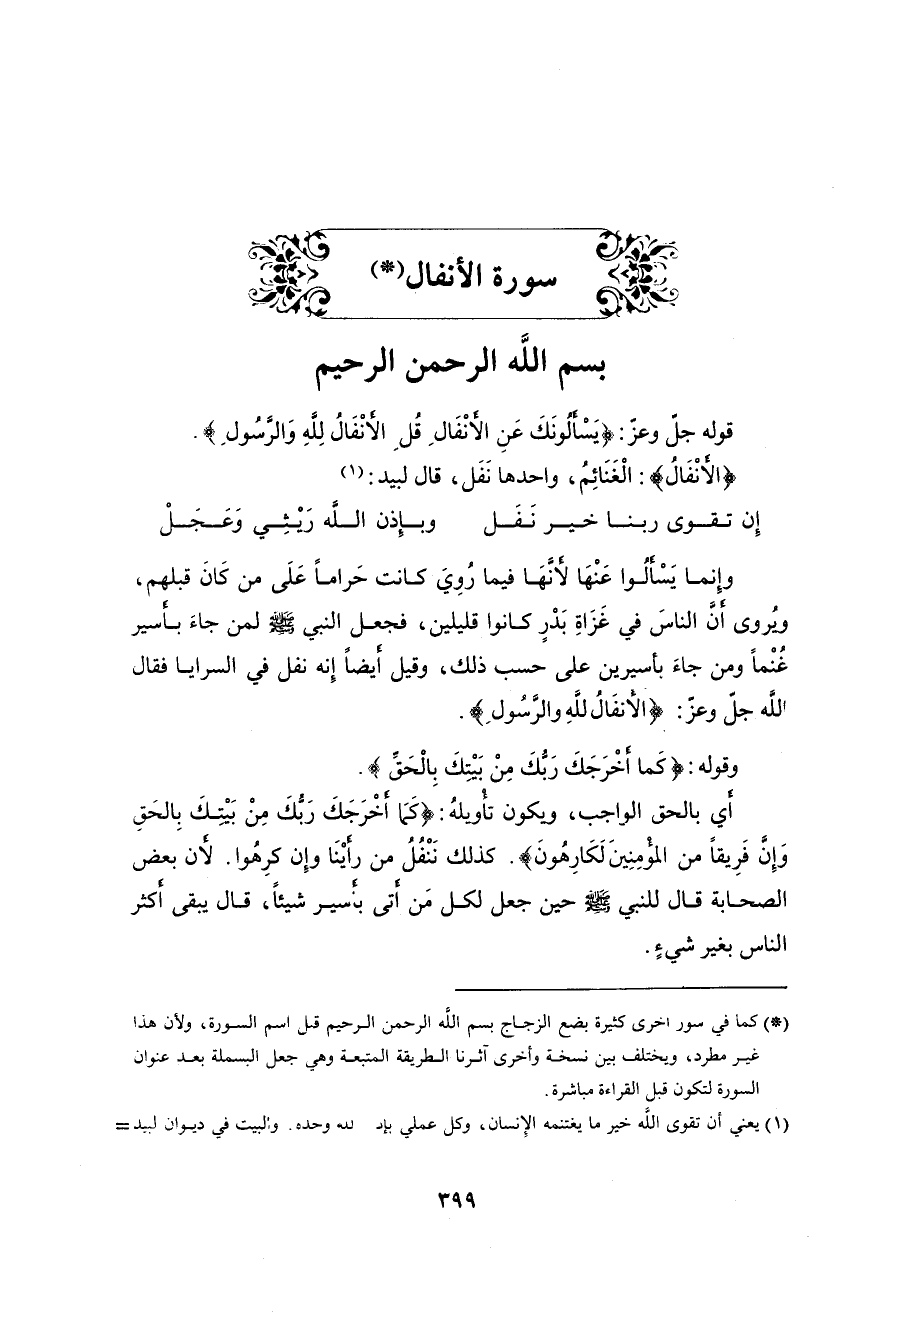 سورة الأنفال(*)
بسم اللَّه الرحمن الرحيم
قوله جلّ وعزّ: ﴿يَسْأَلُونَكَ عَنِ الأَنْفَالِ قُلِ الأَنْفَالُ لِلَّهِ وَالرَّسُولِ﴾.
﴿الأَنْفَالُ﴾: الْغَنَائِمُ، واحدها نَفَل، قال لبيد:(١)
إن تـقـوى ربـنـا خـيـر نَـفَـل وبـإذن الـلَّـه رَيْـثِـي وَعَـجَـلْ
وإنمـا يَسْأَلُـوا عَنْهَا لأَنَّهَـا فيما رُوِيَ كـانت حَرامـاً عَلَى من كَانَ قبلهم،
ويُروى أَنَّ الناسَ في غَزَاةِ بَدْرٍ كـانوا قليلين، فجعـل النبي ﷺ لمن جاءَ بـأسير
غُنْماً ومن جاءَ بأسيرين على حسب ذلك، وقيل أيضاً إنه نفل في السرايـا فقال
اللَّه جلّ وعزّ: ﴿الأَنفَالُ للَّهِ والرَّسُولِ﴾.
وقوله: ﴿كَما أَخْرَجَكَ رَبُّكَ مِنْ بَيْتِكَ بِالْحَقِّ﴾.
أي بالحق الواجب، ويكون تأْويلهُ: ﴿كَمَا أَخْرَجَكَ رَبُّكَ مِنْ بَيْتِـكَ بِالحَقِ
وَإِنَّ فَرِيقاً من المؤْمِنِينَ لَكَارِهُونَ﴾. كذلك نَنْفُلُ من رأَيْنَا وإن كرهُوا. لأن بعض
الصحـابة قـال للنبي ﷺ حين جعل لكـل مَن أتى بأسيـر شيئاً، قـال يبقى أكثر
الناس بغير شيءٍ.
(*) كما في سور اخرى كثيرة يضع الزجـاج بسم اللَّه الرحمن الـرحيم قبـل اسم السـورة، ولأن هذا
غيـر مطرد، ويختلف بين نسخـة وأخرى آثـرنا الـطريقة المتبعـة وهي جعل البسملة بعـد عنوان
السورة لتكون قبل القراءة مباشرة.
(١) يعني أن تقوى اللَّه خير ما يغتنمه الإنسان، وكل عملي لله وحده. والبيت في ديـوان لبيـد =
٣٩٩